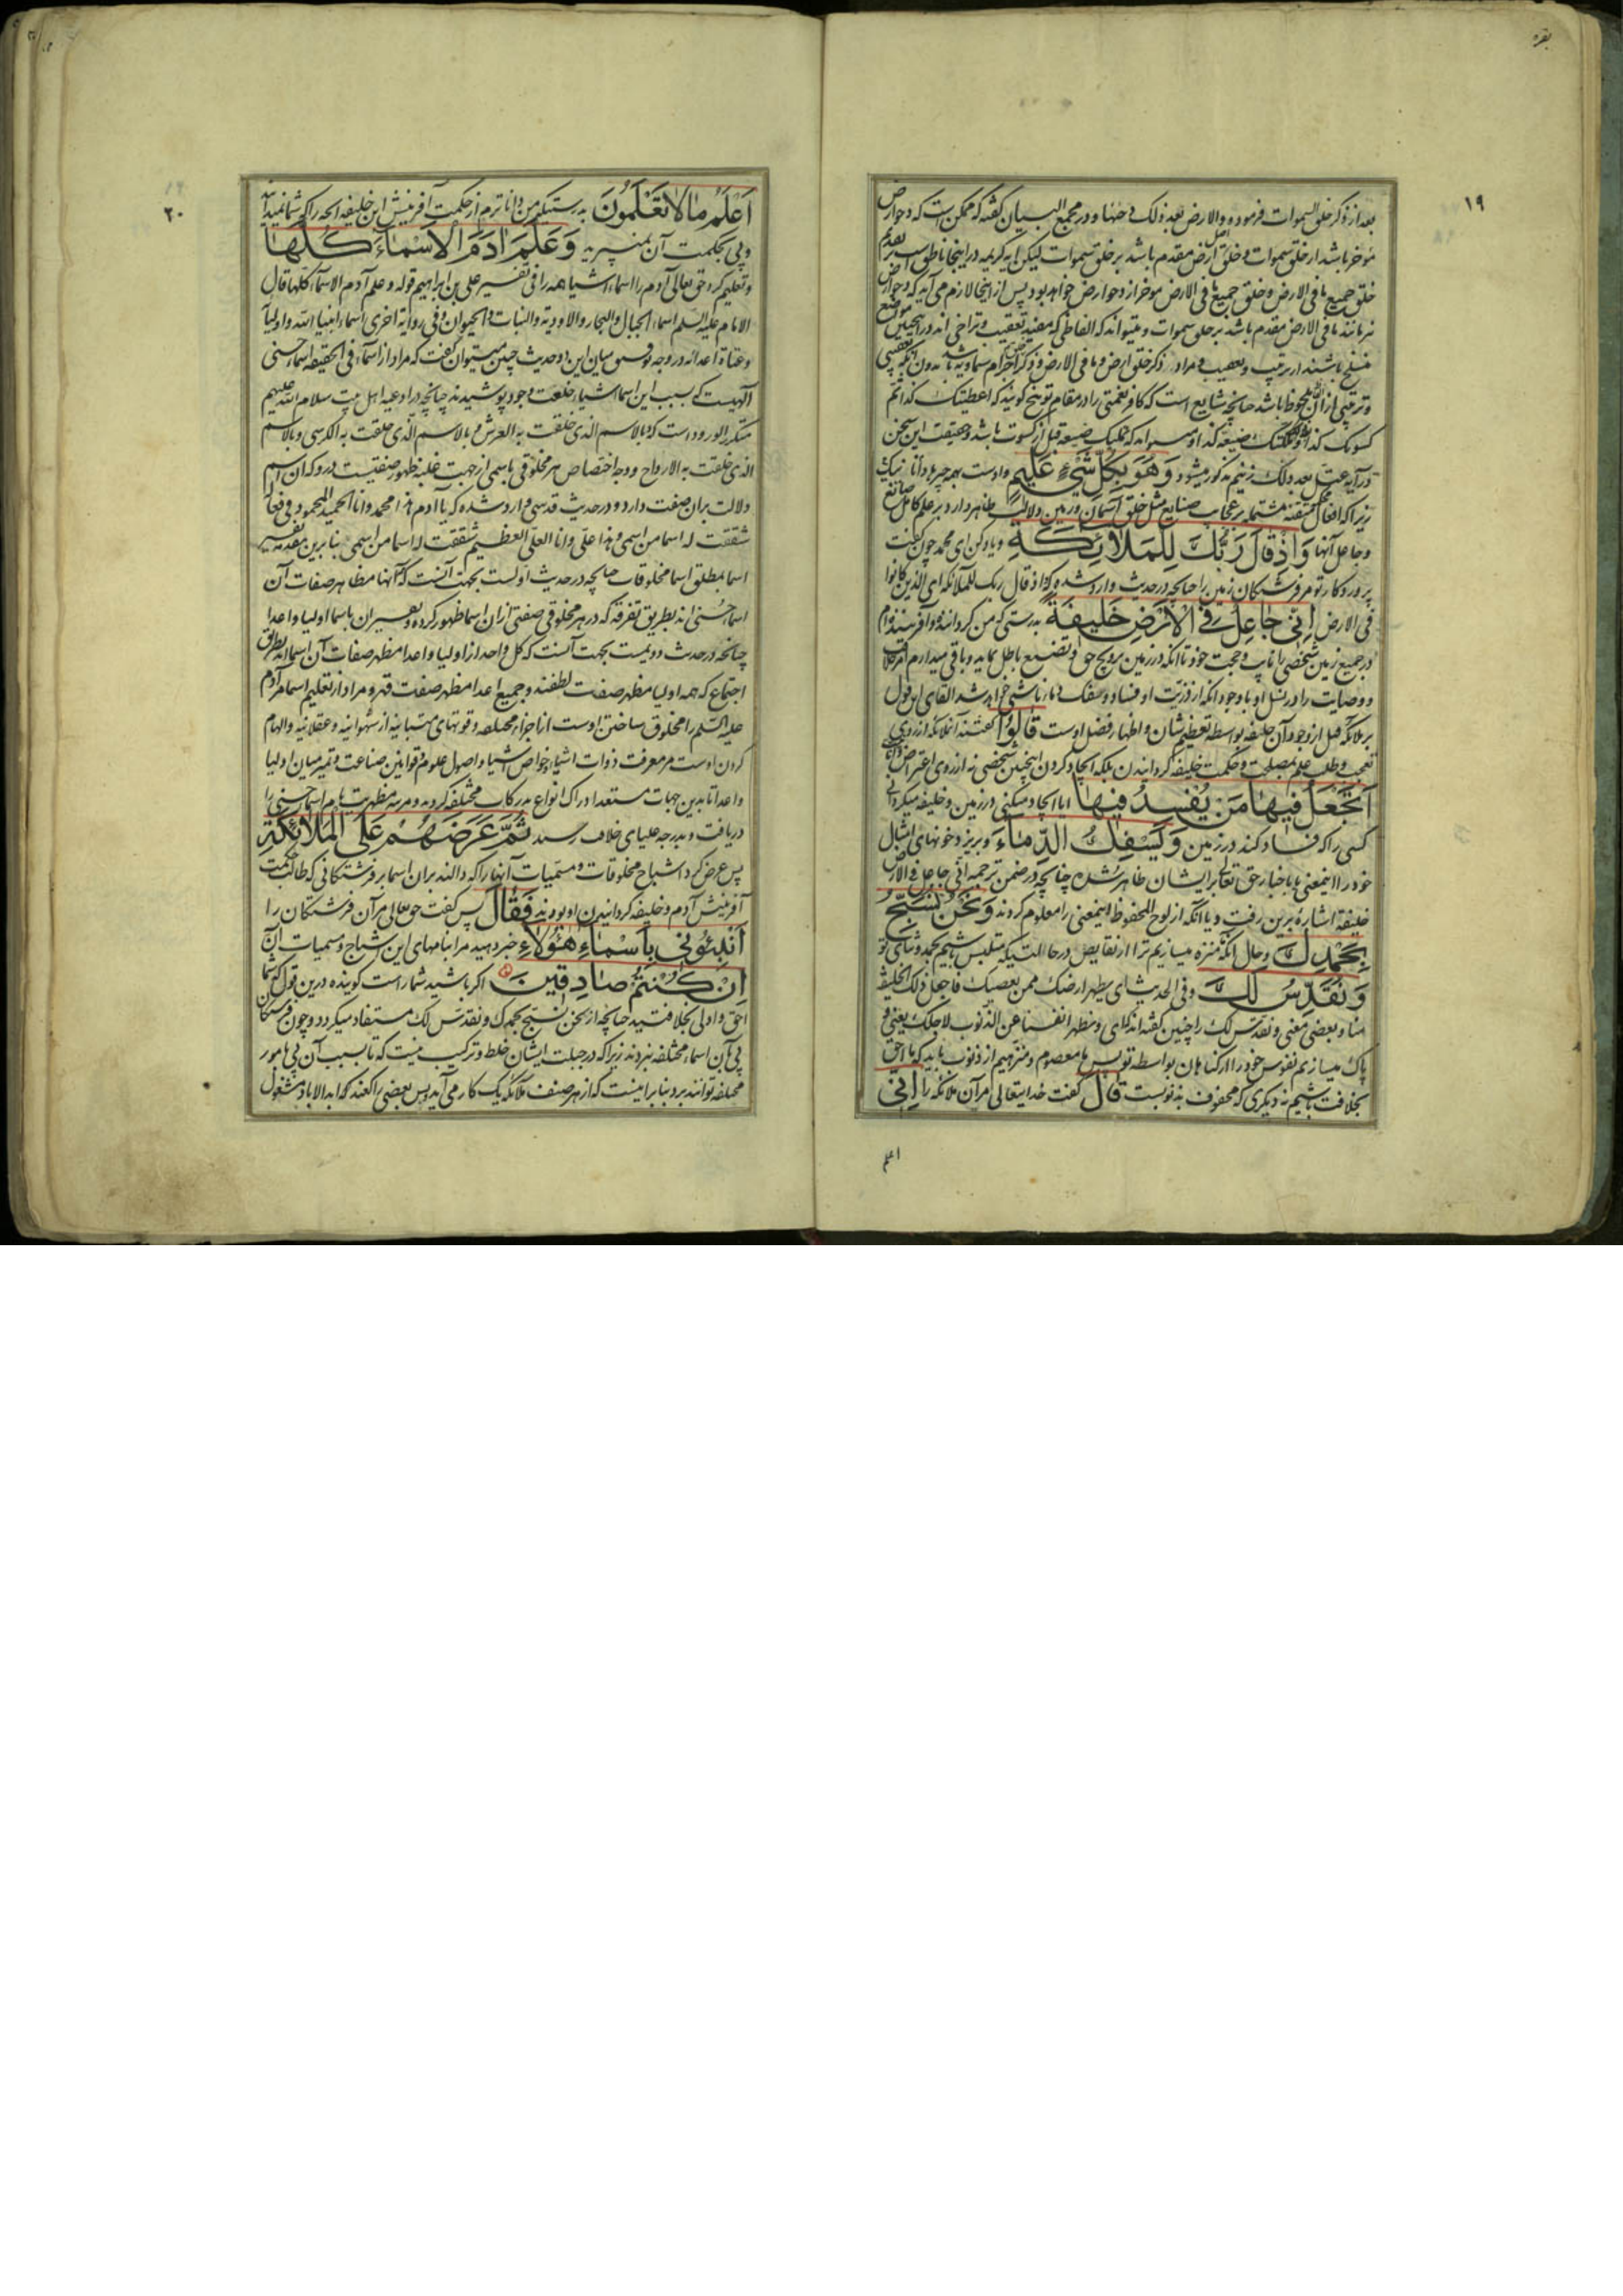 بقره
۱۹
بعد از ذکر خلق السموات فرموده و الارض بعد ذلک دحیها و در مجمع البیان گفته که ممکن است که دحو ارض
مؤخر باشد از خلق سموات و خلق اصل ارض مقدم باشد بر خلق سموات لیکن این کریمه در اینجا ناطق است بر تقدم
خلق جمیع ما فی الارض و خلق جمیع ما فی الارض مؤخر از دحو ارض خواهد بود پس از اینجا لازم می آید که دحو ارض
نیز مانند ما فی الارض مقدم باشد بر خلق سموات و میتواند که الفاظی که مفید تعقیب و تراخی اند در اینچنین موضع
منسلخ باشند از ترتیب و تعقیب و مراد ذکر خلق ارض و ما فی الارض و ذکر اجرام سماویه باشد بدون آنکه تعقیبی
و ترتیبی از آن ملحوظ باشد چنانچه شایع است که کافر نعمتی را در مقام توبیخ گویند که اعطیتک کذا ثم
کسوتک کذا و ملکتک ضیعة کذا و میتواند که تملیک ضیعه قبل از کسوت باشد و حقیقت این سخن
در آیه عتل بعد ذلک زنیم مذکور میشود وَهُوَ بِكُلِّ شَيْءٍ عَلِيمٌ و اوست بهمه چیز دانا نزیک
زیرا که افعال محکم متقنه مشتمله بر عجایب صنایع مثل خلق آسمان و زمین دلالت ظاهر دارد بر علم کامل صانع
و جاعل آنها وَاِذْ قَالَ رَبُّكَ لِلْمَلَائِكَةِ و یاد کن ای محمد چون گفت
پروردگار تو مر فرشتگان زمین را چنانچه در حدیث وارد شده که اذ قال ربک للملائکه ای الذین کانوا
فی الارض اِنِّي جَاعِلٌ فِي الْاَرْضِ خَلِيفَةً بدرستی که من گرداننده و آفریننده ام
در جمیع زمین شخصی را نایب و حجت خود تا آنکه در زمین ترویج حق و تضییع باطل نماید و باقی میدارم امر خلافت
و وصایت را در نسل او با وجود آنکه از ذریت او فساد و سفک دما ناشی خواهد شد القای این قول
بر ملائکه قبل از وجود آن خلیفه بواسطه تعظیم شان و اظهار فضل اوست قَالُوا گفتند آن ملائکه از روی
تعجب و طلب علم بمصلحت و حکمت خلیفه گردانیدن بلکه ایجاد کردن اینچنین شخصی نه از روی اعتراض
اَتَجْعَلُ فِيهَا مَنْ يُفْسِدُ فِيهَا ایا ایجاد میکنی در زمین و خلیفه میگردانی
کسی را که فساد کند در زمین وَيَسْفِكُ الدِّمَاءَ و بریزد خونهای امثال
خود را اینمعنی یا باخبار حق تعالی بر ایشان ظاهر شده چنانچه در ضمن ترجمه انی جاعل فی الارض
خلیفة اشاره برین رفت و یا آنکه از لوح المحفوظ اینمعنی را معلوم کردند وَنَحْنُ نُسَبِّحُ
بِحَمْدِكَ و حال آنکه منزه میسازیم ترا از نقایص در حالتیکه متلبس باشیم بحمد و ثنای تو
وَنُقَدِّسُ لَكَ و فی الحدیث ای نطهر ارضک ممن یعصیک فاجعل ذلک الخلیفة
منا و بعضی معنی و نقدس لک را چنین گفته اند که ای و نطهر انفسنا عن الذنوب لاجلک یعنی و
پاک میسازیم نفوس خود را از گناهان بواسطه تو پس ما معصوم و منزهیم از ذنوب باید که ما احق
بخلافت باشیم نه دیگری که محفوف بذنوبست قَالَ گفت خدایتعالی مر آن ملائکه را اِنِّي
اعلم
۲۰
اَعْلَمُ مَا لَا تَعْلَمُونَ بدرستیکه من داناترم از حکمت آفرینش این خلیفه آنچه را که شما نمیدانید
و پی بحکمت آن نمی‌برید وَعَلَّمَ اٰدَمَ الْاَسْمَاءَ كُلَّهَا
و تعلیم کرد حق تعالی آدم را اسماء اشیا همه را فی تفسیر علی بن ابراهیم قوله و علم آدم الاسماء کلها قال
الامام علیه السلم اسماء الجبال و البحار و الاودیة و النبات و الحیوان و فی روایة اخری اسماء انبیاء الله و اولیا
و عتاة اعدائه و در وجه توفیق میان این دو حدیث چنین میتوان گفت که مراد از اسماء فی الحقیقه اسماء حسنی
الهیست که بسبب این اسما اشیا خلعت وجود پوشیدند چنانچه در ادعیه اهل بیت سلام الله علیهم
متکرر الورود است که و بالاسم الذی خلقت به العرش و بالاسم الذی خلقت به الکرسی و بالاسم
الذی خلقت به الارواح و وجه اختصاص هر مخلوقی باسمی از جهت غلبه ظهور صفتیست درو که آن اسم
دلالت بران صفت دارد و در حدیث قدسی وارد شده که یا آدم هذا محمد و انا الحمید المحمود فی فعالی
شققت له اسما من اسمی و هذا علی و انا العلی العظیم شققت له اسما من اسمی بنابرین مقدمه تفسیر
اسما بمطلق اسما مخلوقات چنانچه در حدیث اولست بجهت آنست که آنها مظاهر صفات آن
اسماء حسنی اند بطریق تفرقه که در هر مخلوقی صفتی ازان اسما ظهور کرده و تفسیر آن باسما اولیا و اعدا
چنانچه در حدیث دویمست بجهت آنست که کل واحد از اولیا و اعدا مظهر صفات آن اسما اند بطریق
اجتماع که همه اولیا مظهر صفت لطفند و جمیع اعدا مظهر صفت قهر و مراد از تعلیم اسما مر آدم
علیه السلم را مخلوق ساختن اوست از اجزاء مختلفه و قوتهای متباینه از شهوانیه و عقلانیه و الهام
کردن اوست مر معرفت ذوات اشیا و خواص اشیا و اصول علوم و قوانین صناعت و تمیز میان اولیا
و اعدا تا بدین جهات مستعد ادراک انواع مدرکات مختلفه گردید و مرتبه مظهریت تام اسماء حسنی را
دریافت و بدرجه علیای خلافت رسید ثُمَّ عَرَضَهُمْ عَلَى الْمَلَائِكَةِ
پس عرض کرد اشباح مخلوقات و مسمیات آنها را که دالند بران اسما بر فرشتگانی که طالب حکمت
آفرینش آدم و خلیفه گردانیدن او بودند فَقَالَ پس گفت حق تعالی مر آن فرشتگان را
اَنْبِئُونِي بِاَسْمَاءِ هٰؤُلَاءِ خبر دهید مرا بنامهای این اشباح و مسمیات آن
اِنْ كُنْتُمْ صَادِقِينَ اگر باشید شما راست گوینده درین قول که شما
احق و اولی بخلافتید چنانچه از نحن نسبح بحمدک و نقدس لک مستفاد میگردد و چون فرشتگان
پی بآن اسماء مختلفه نبردند زیرا که در جبلت ایشان خلط و ترکیب نیست که تا بسبب آن پی بامور
مختلفه توانند برد بنابر اینست که از هر صنف ملائکه یک کار می آید پس بعضی راکعند که ابد الاباد مشغول